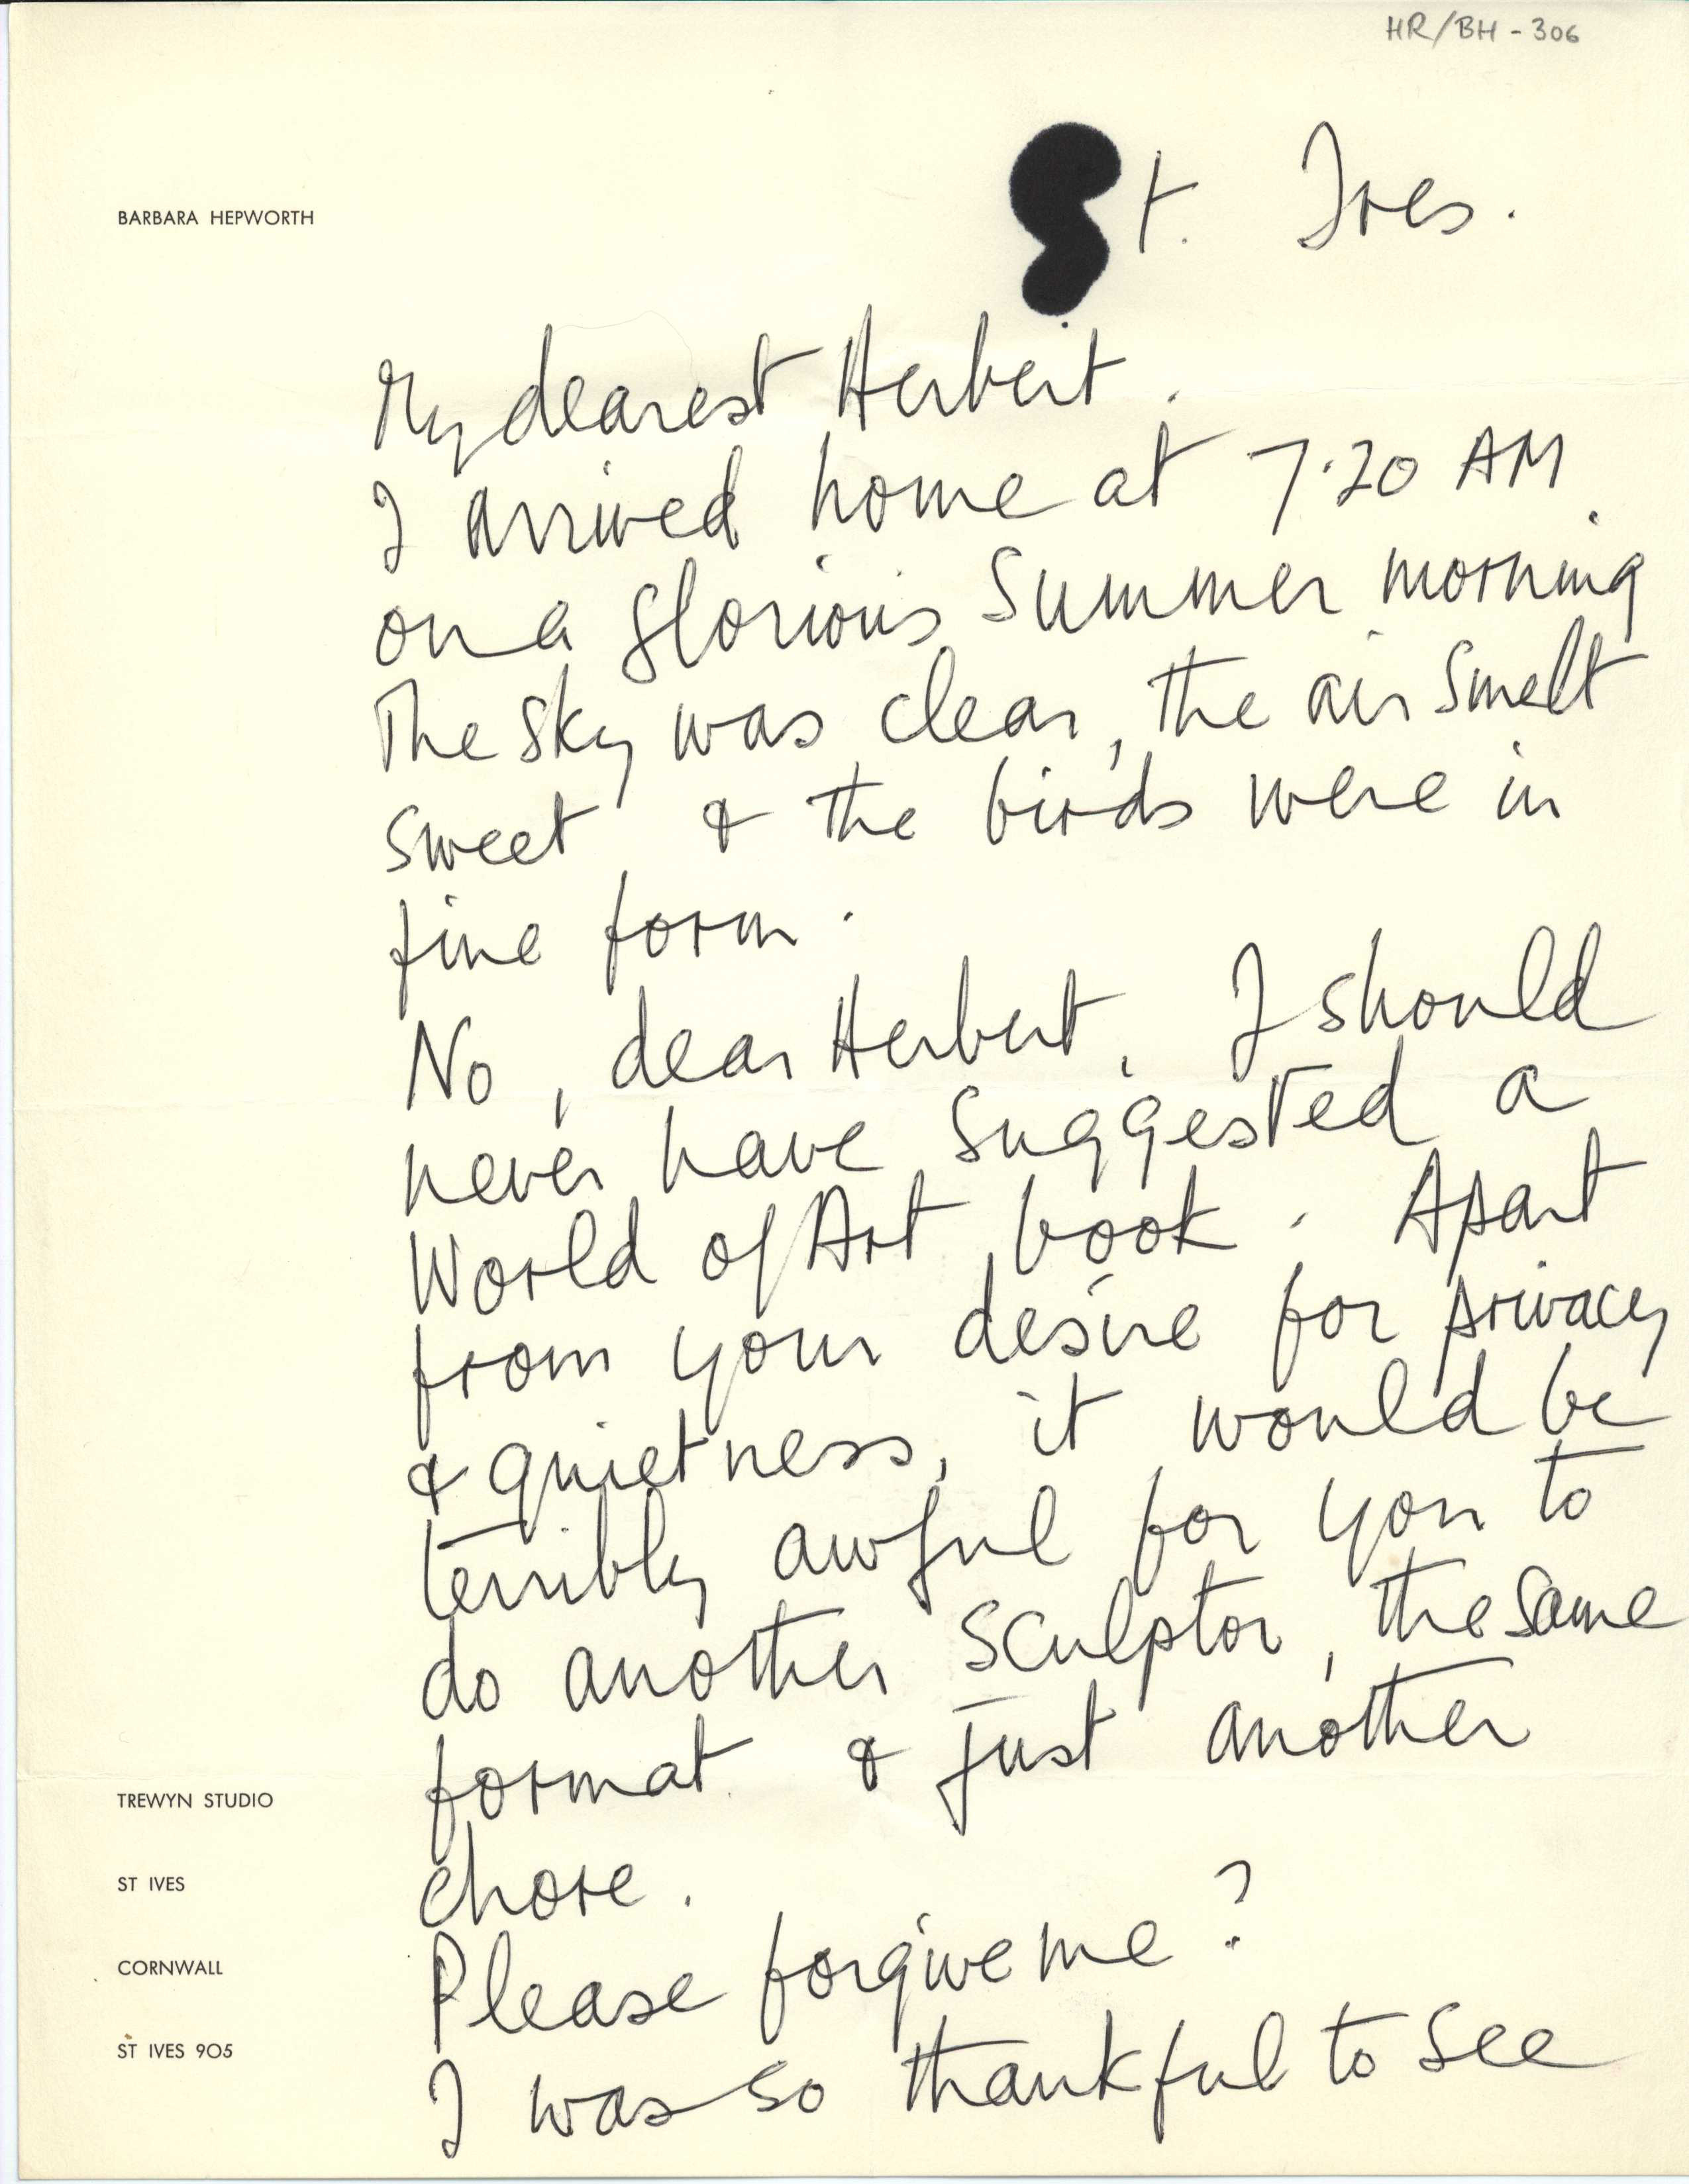 HR/BH - 306
BARBARA HEPWORTH
St. Ives.
My dearest Herbert.
I arrived home at 7.20 AM
on a glorious Summer morning.
The sky was clear, the air smelt
sweet & the birds were in
fine form.
No, dear Herbert, I should
never have suggested a
World of Art book. Apart
from your desire for privacy
& quietness, it would be
terribly awful for you to
do another sculptor, the same
format & just another
chore.
Please forgive me?
I was so thankful to see
TREWYN STUDIO
ST IVES
CORNWALL
ST IVES 905